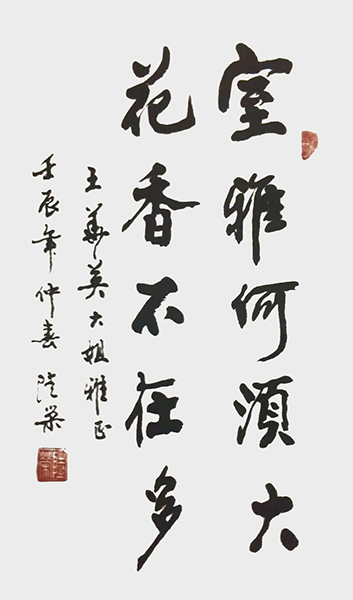 室雅何須大
花香不在多
王華英大姐雅正
壬辰年仲春